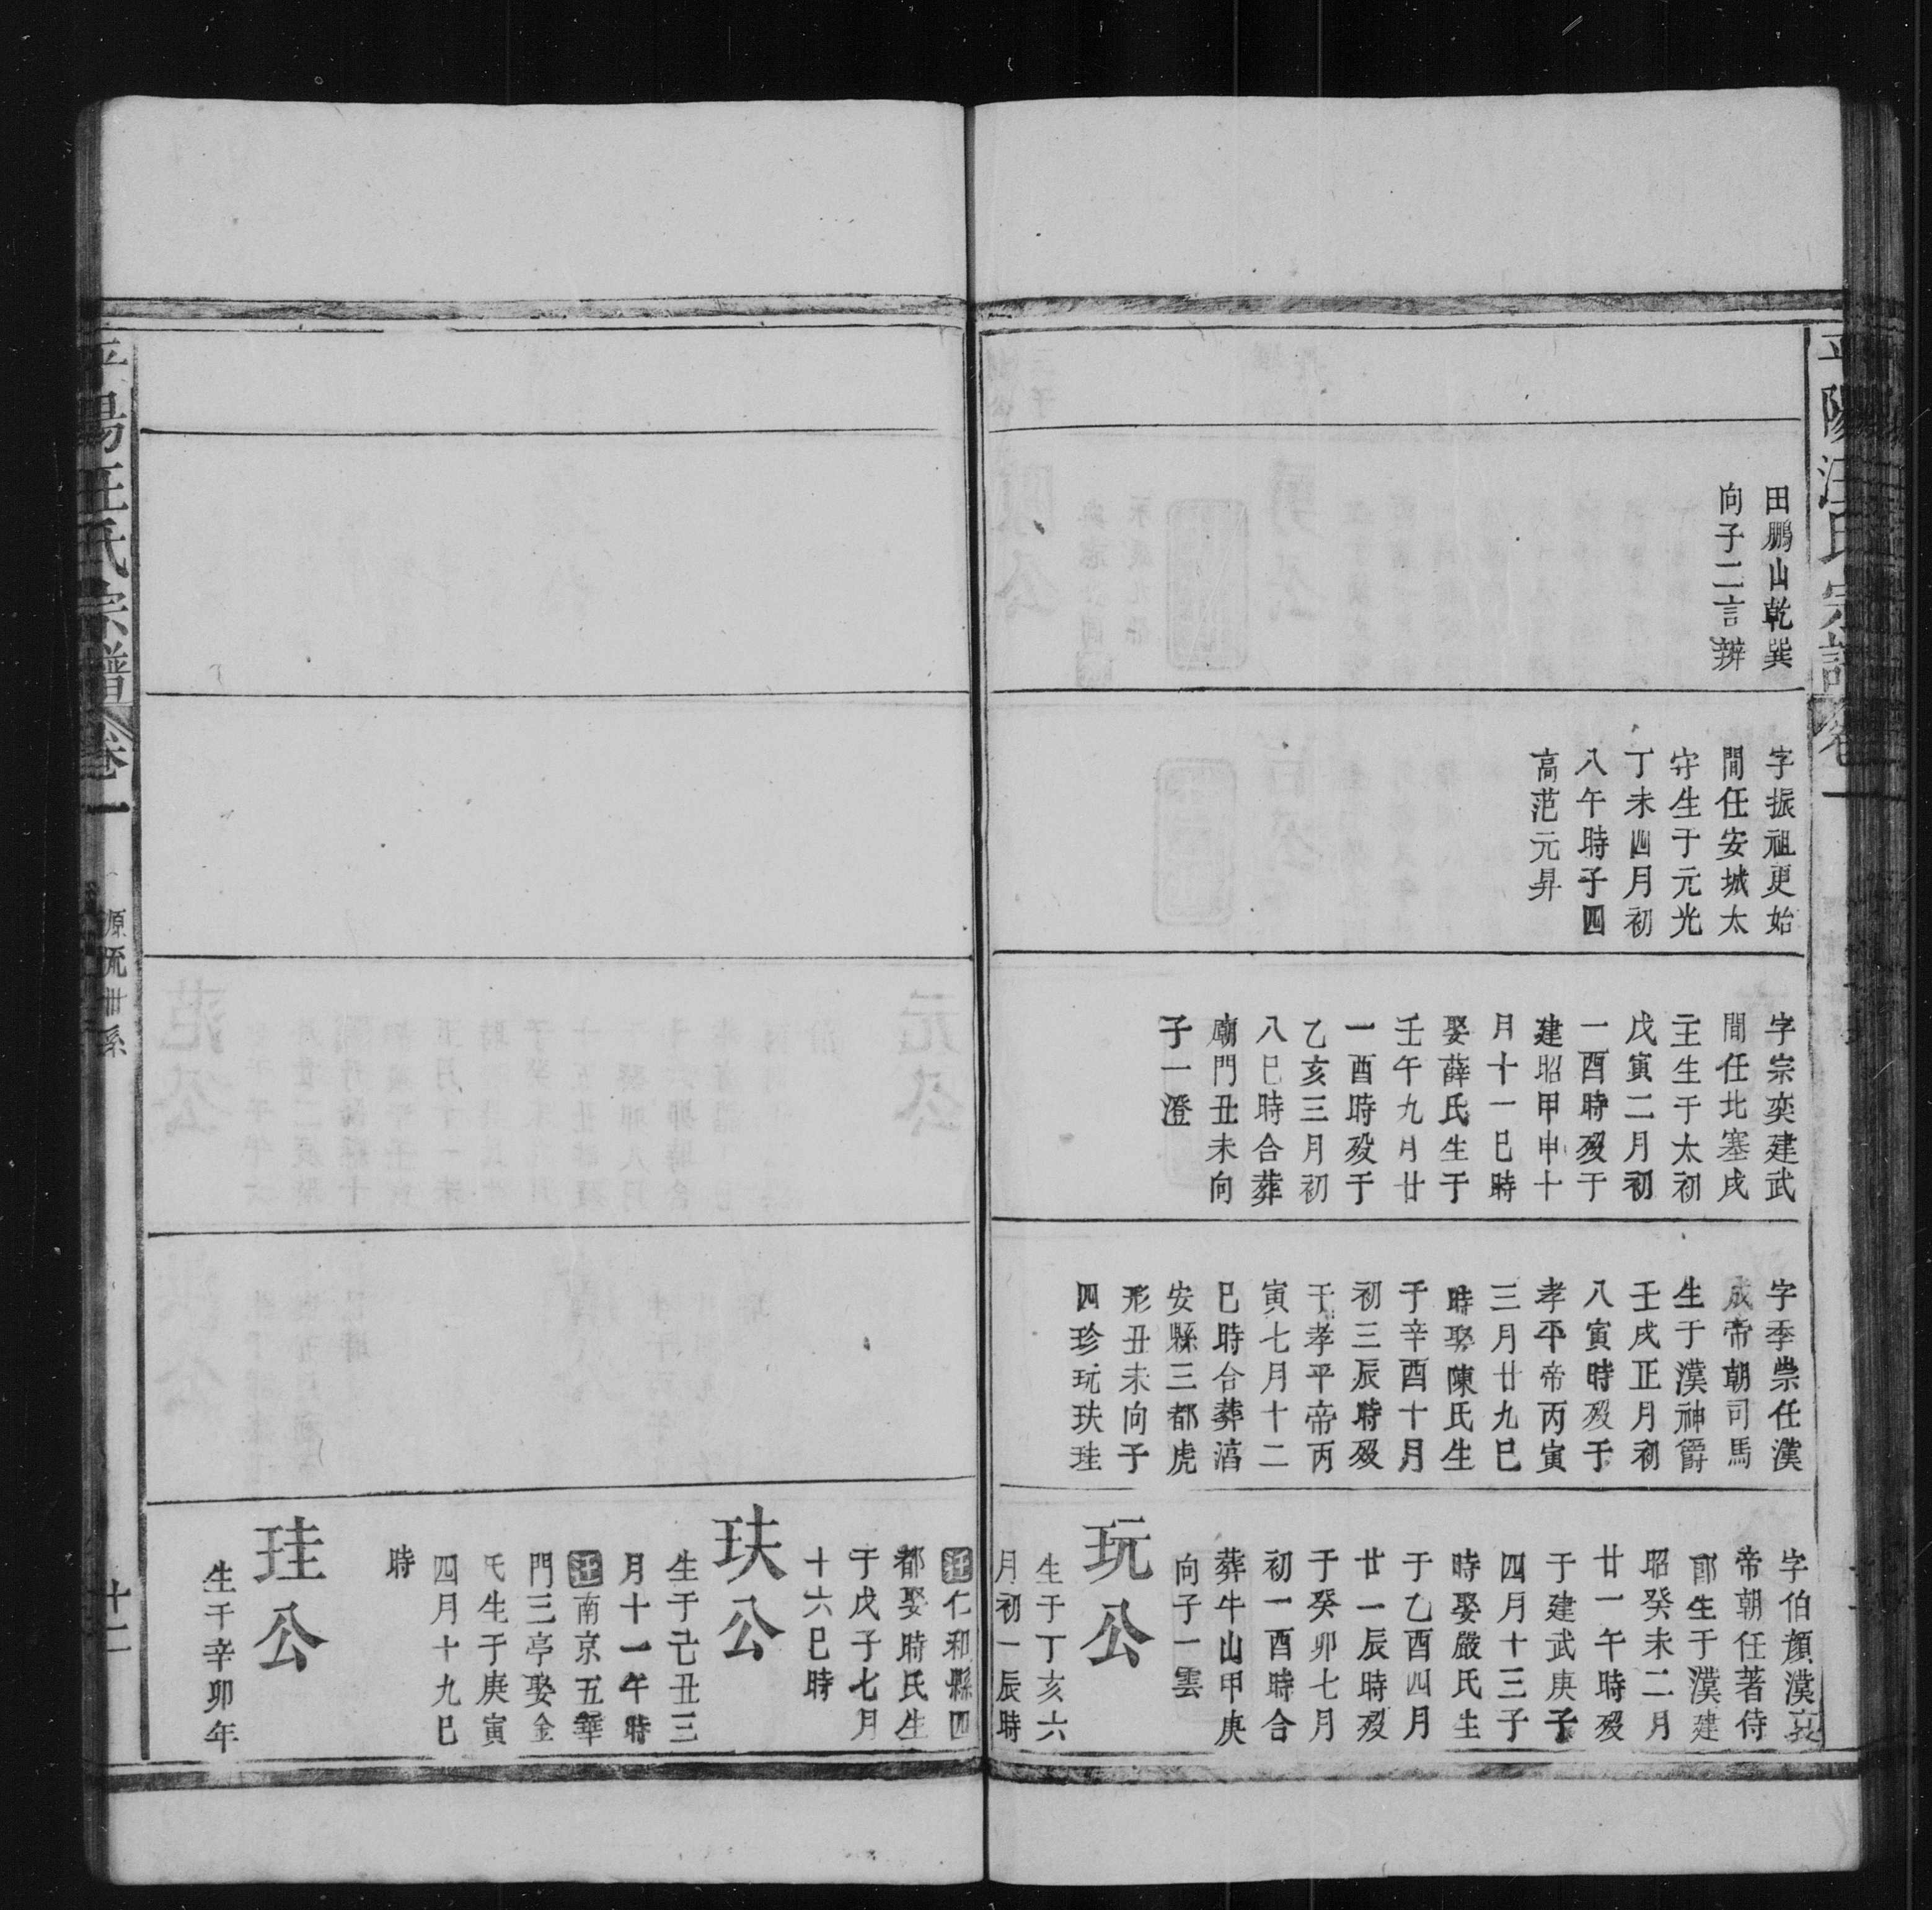 平陽汪氏宗譜 卷一
田鵬山乾巽
向子二言辨
字振祖更始
間任安城太
守生于元光
丁未四月初
八午時子四
高范元昇
字宗奕建武
間任北塞戍
主生于太初
戊寅二月初
一酉時歿于
建昭甲申十
月十一巳時
娶薛氏生于
壬午九月廿
一酉時歿于
乙亥三月初
八巳時合葬
廟門丑未向
子一澄
字季崇任漢
成帝朝司馬
生于漢神爵
壬戌正月初
八寅時歿于
孝平帝丙寅
三月廿九巳
時娶陳氏生
于辛酉十月
初三辰時歿
于孝平帝丙
寅七月十二
巳時合葬湻
安縣三都虎
形丑未向子
四珍玩玞珪
字伯顔漢哀
帝朝任著侍
郎生于漢建
昭癸未二月
廿一午時歿
于建武庚子
四月十三子
時娶嚴氏生
于乙酉四月
廿一辰時歿
于癸卯七月
初一酉時合
葬牛山甲庚
向子一雲
玩公
生于丁亥六
月初一辰時
迁仁和縣四
都娶時氏生
于戊子七月
十六巳時
玞公
生于己丑三
月十一午時
迁南京五華
門三亭娶金
氏生于庚寅
四月十九巳
時
珪公
生于辛卯年
平陽汪氏宗譜 卷一 源流世系 十二